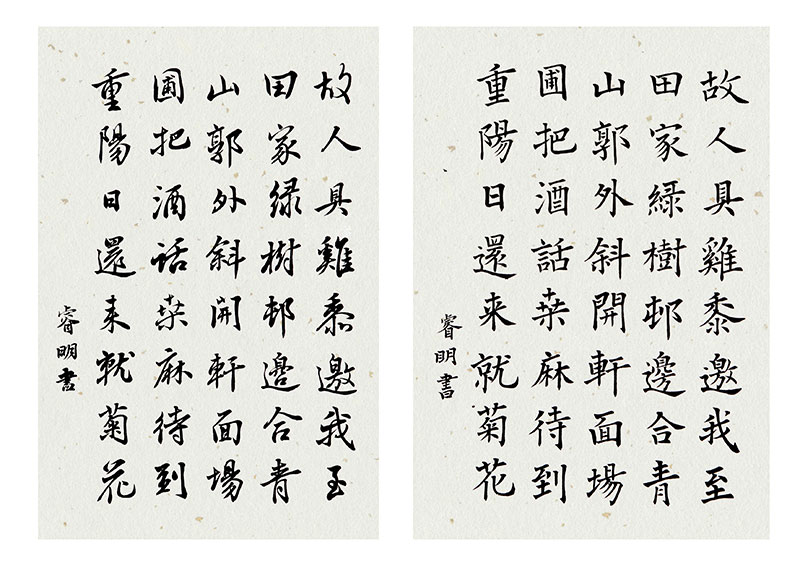 故人具雞黍邀我至
田家緑樹邨邊合青
山郭外斜開軒面場
圃把酒話桒麻待到
重陽日還来就菊花
睿明書
故人具雞黍邀我至
田家緑樹邨邊合青
山郭外斜開軒面場
圃把酒話桒麻待到
重陽日還来就菊花
睿明書